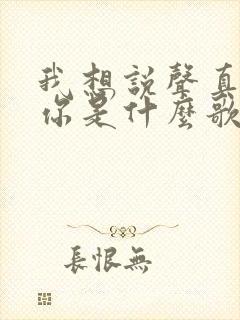 我想説聲真
你是什麼歌
長恨無